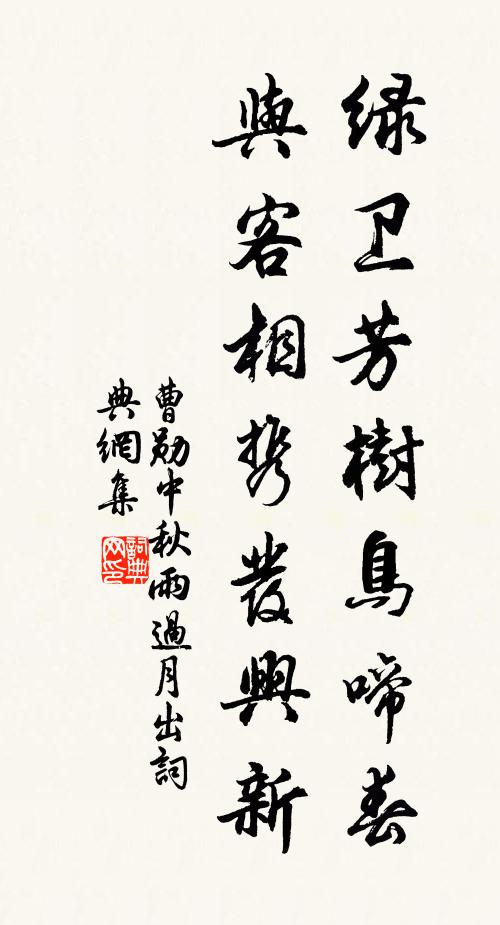 绿卫芳樹鳥啼春
與客相携發興新
曹勛中秋雨過月出詞
典網集
詞典網印